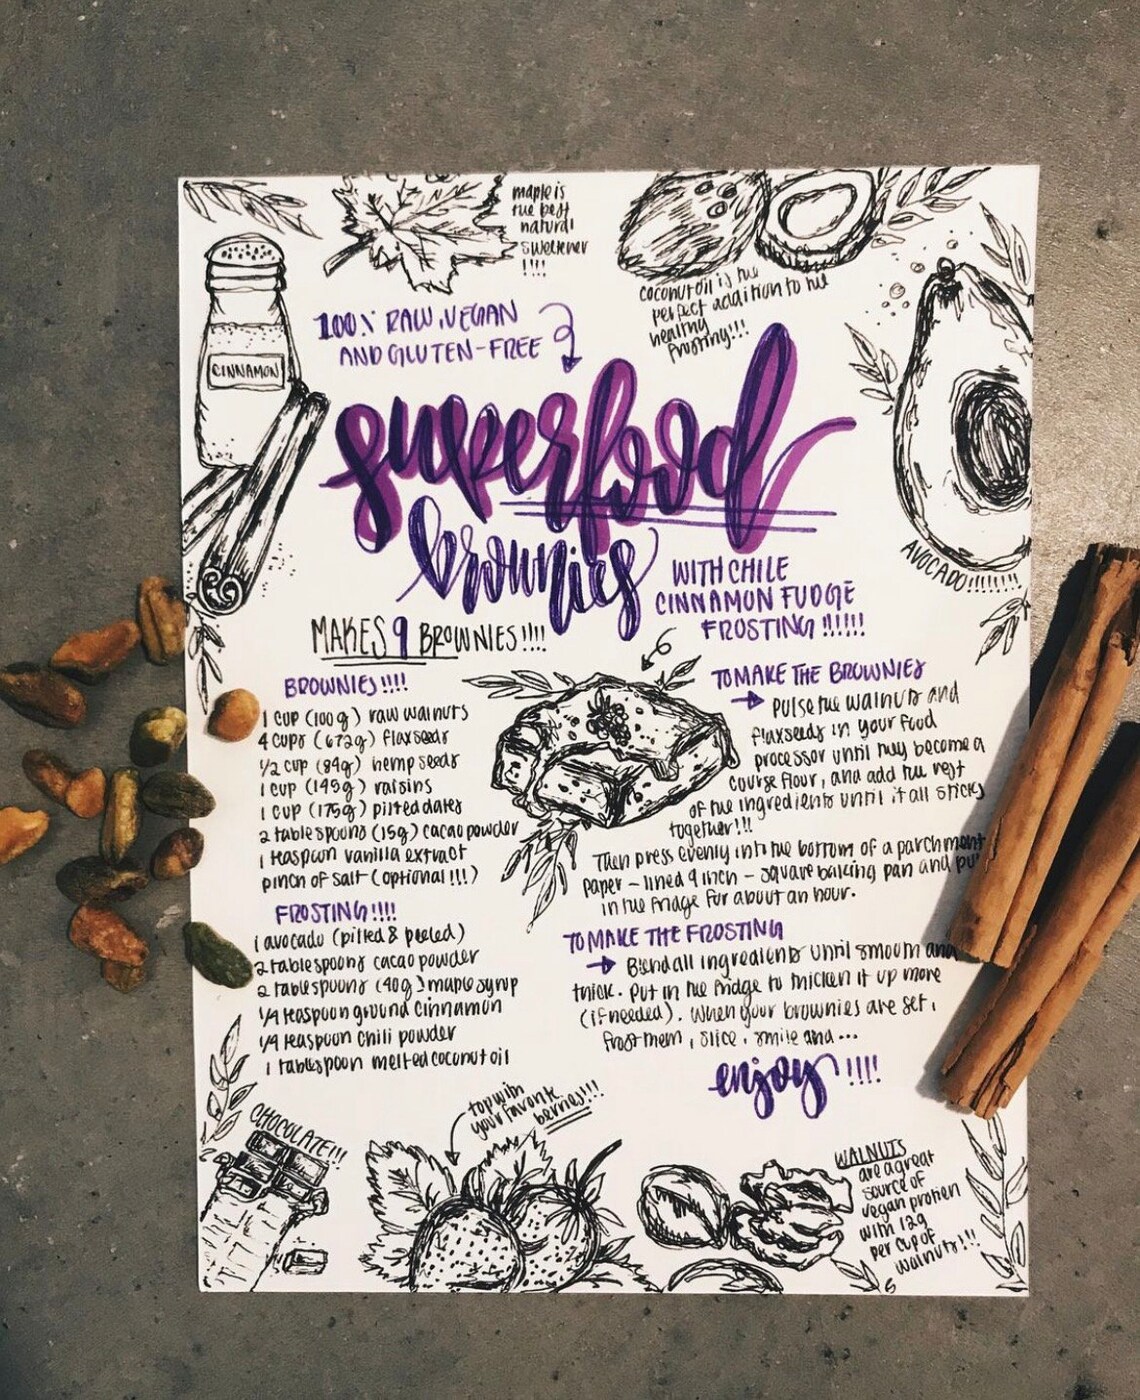 maple is
the best
natural
sweetener
!!!!
coconut oil is the
perfect addition to the
healthy
frosting!!!
CINNAMON
100% RAW, VEGAN
AND GLUTEN-FREE
superfood
brownies
WITH CHILE
CINNAMON FUDGE
FROSTING!!!!!!
AVOCADO!!!!!!!!
MAKES 9 BROWNIES!!!!
BROWNIES!!!!
1 cup (100g) raw walnuts
4 cups (672g) flaxseeds
1/2 cup (84g) hemp seeds
1 cup (145g) raisins
1 cup (175g) pitted dates
2 tablespoons (15g) cacao powder
1 teaspoon vanilla extract
pinch of salt (optional!!!)
FROSTING!!!!
1 avocado (pitted & peeled)
2 tablespoons cacao powder
2 tablespoons (40g) maple syrup
1/4 teaspoon ground cinnamon
1/4 teaspoon chili powder
1 tablespoon melted coconut oil
TO MAKE THE BROWNIES
→ Pulse the walnuts and
flaxseeds in your food
processor until they become a
course flour, and add the rest
of the ingredients until it all sticks
together!!!
Then press evenly into the bottom of a parchment
paper-lined 9 inch-square baking pan and
in the fridge for about an hour.
TO MAKE THE FROSTING
→ Blend all ingredients until smooth and
thick. Put in the fridge to thicken it up more
(if needed). When your brownies are set,
frost them, slice, smile and...
enjoy!!!!
CHOCOLATE!!!
top with
your favorite
berries!!!!
WALNUTS
are a great
source of
vegan protien
with 12g
per cup of
walnuts!!!